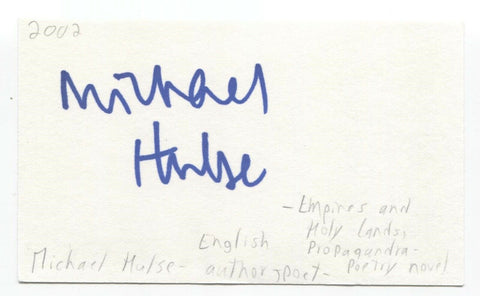 2002
Michael
Hulse
- Empires and
Holy Lands,
Propagandra-
Poetry novel
English
Michael Hulse- author, poet-